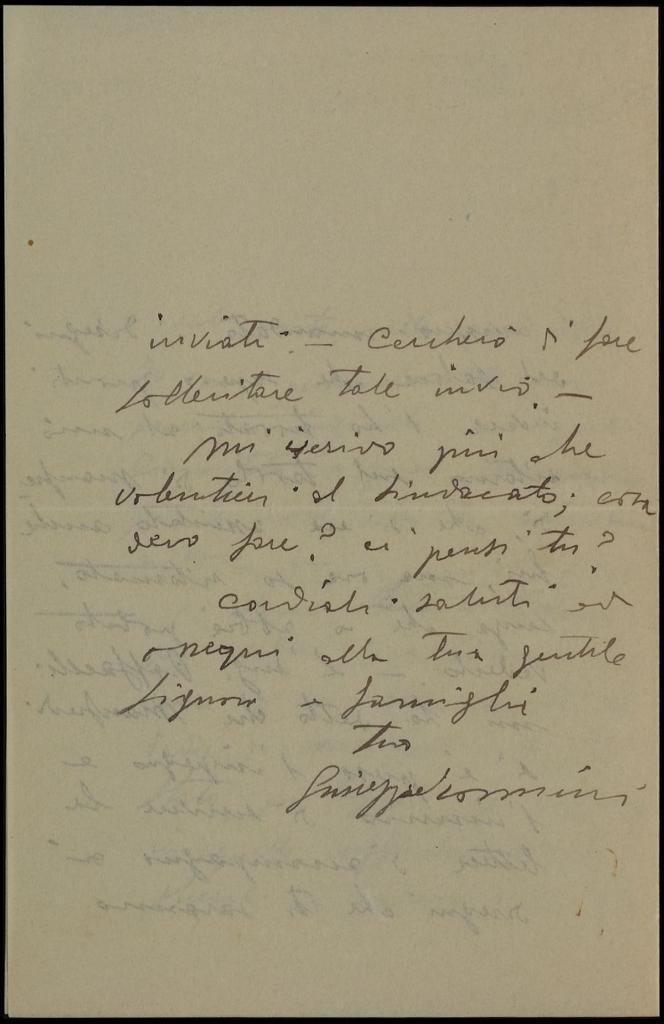 inviati. — Cercherò di fare
sollecitare tale invio. —
Mi iscrivo più che
volentieri al sindacato; cosa
devo fare? ci pensi tu?
Cordiali saluti ed
ossequi alla tua gentile
Signora e famiglia
tuo
Giuseppe